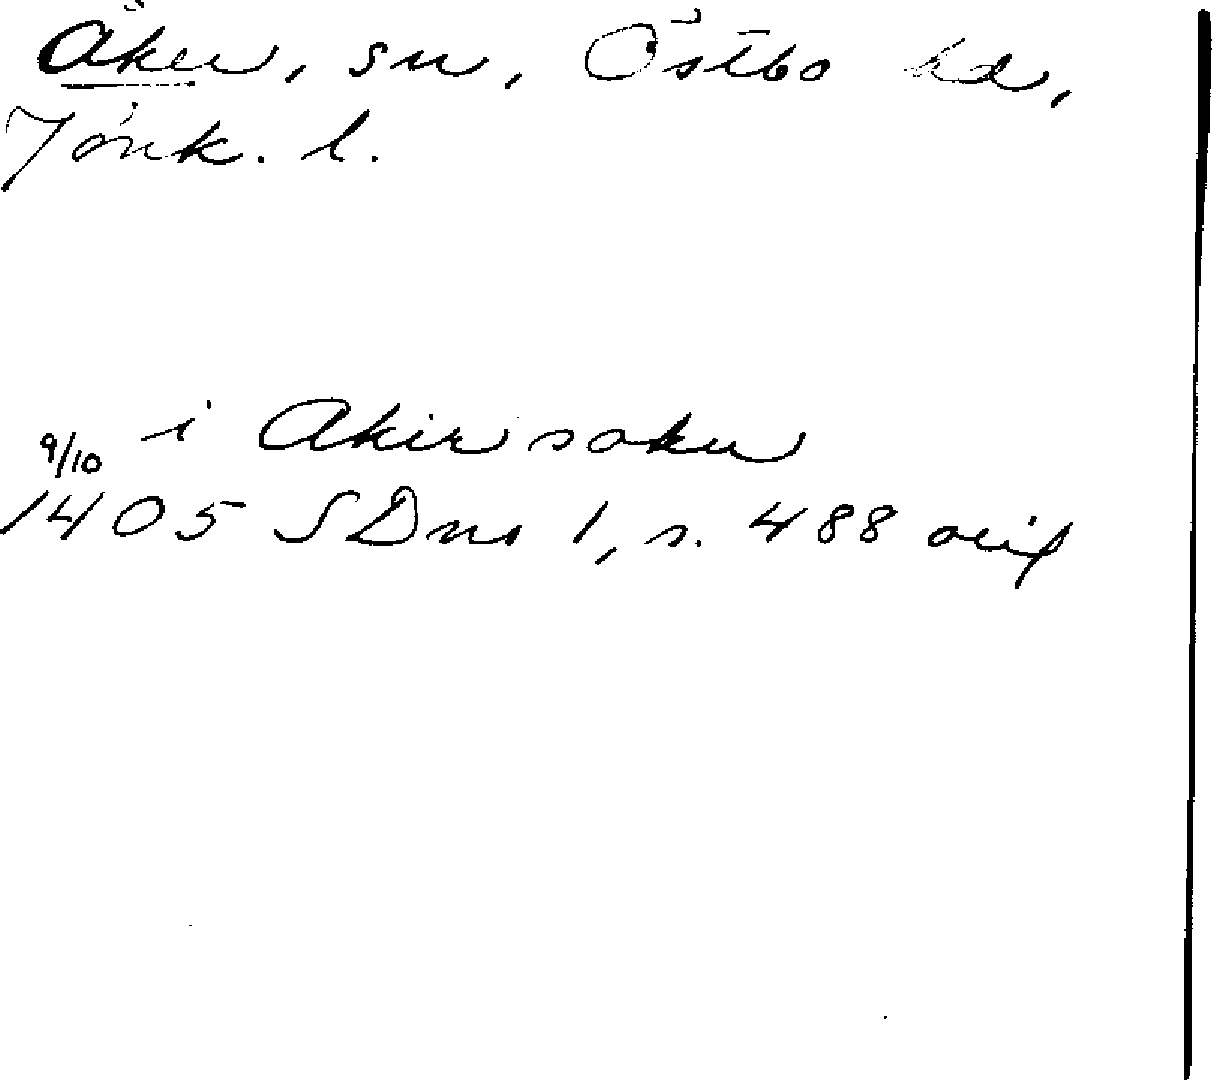 Åker, sn, Östbo hd,
Jönk. l.
i Akir sokn
9/10
1405 SDns 1, s. 488 orig